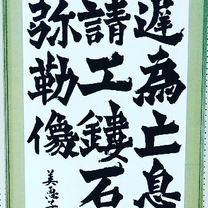 遲為亡息
請工鏤石
弥勒像
美